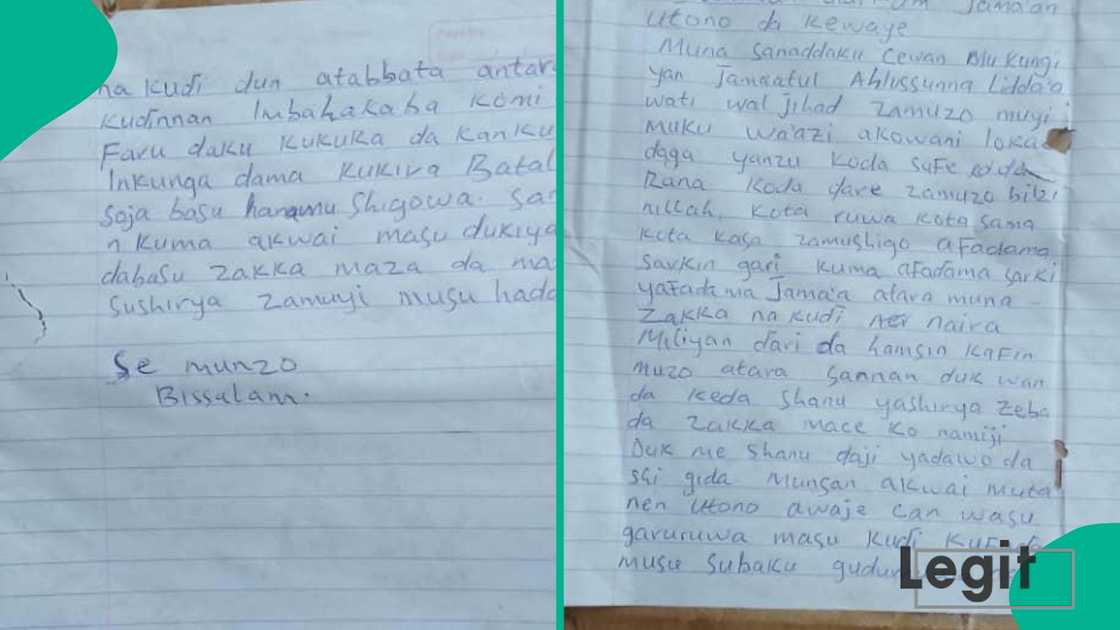 na kudi dun atabbata antar
kudinnan Imbahakaba komi
Faru daku kukuka da kanku
Inkunga dama kukira Batal
soja basu hanamu shigowa. san
n kuma akwai masu dukiya
dabasu zakka maza da ma
sushirya zamuyi musu hada
Se munzo
Bissalam.
Jama'an
utono da kewaye
Muna sanaddaku cewan Mu kungi
yan Jamaatul Ahlussunna Lidda'a
wati wal jihad zamuzo muyi
muku wa'azi akowani lokac
daga yanzu koda safe
Rana koda dare zamuzo bibi
nillah, kota ruwa kota sama
kota kasa zamushigo afadama
Sarkin gari kuma afadama sarki
yafada ma Jama'a atara muna
Zakka na kudi naira
Miliyan dari da hamsin kafin
muzo atara sannan duk wan
da keda shanu yashirya zeba
da zakka mace ko namiji
Duk me shanu daji yadawo da
shi gida munsan akwai muta
nen utono awaje can wasu
garuruwa masu kudi
musu subaku
Legit